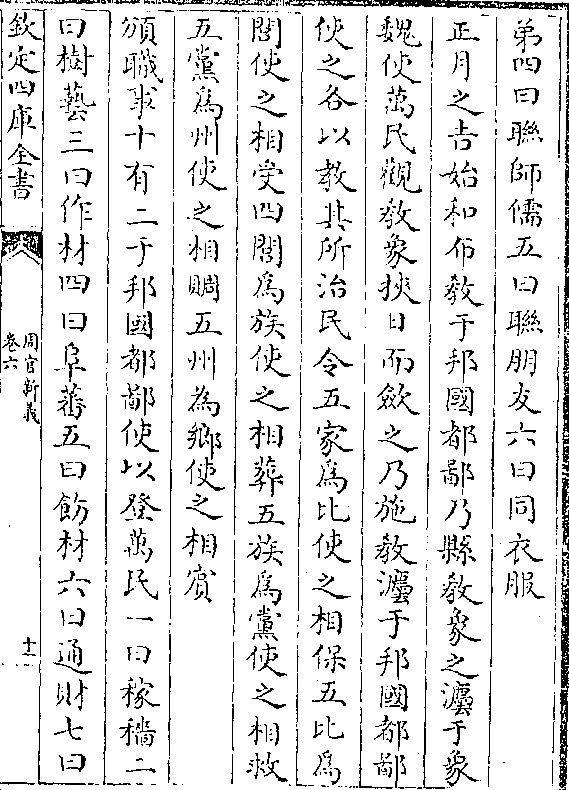 弟四曰聯師儒五曰聯朋友六曰同衣服
正月之吉始和布教于邦國都鄙乃縣教象之灋于象
魏使萬民觀教象挾日而斂之乃施教灋于邦國都鄙
使之各以教其所治民令五家為比使之相保五比為
閭使之相受四閭為族使之相葬五族為黨使之相救
五黨為州使之相賙五州為鄉使之相賓
頒職事十有二于邦國都鄙使以登萬民一曰稼穡二
曰樹藝三曰作材四曰阜蕃五曰飭材六曰通財七曰
欽定四庫全書
周官新義
卷六
十一